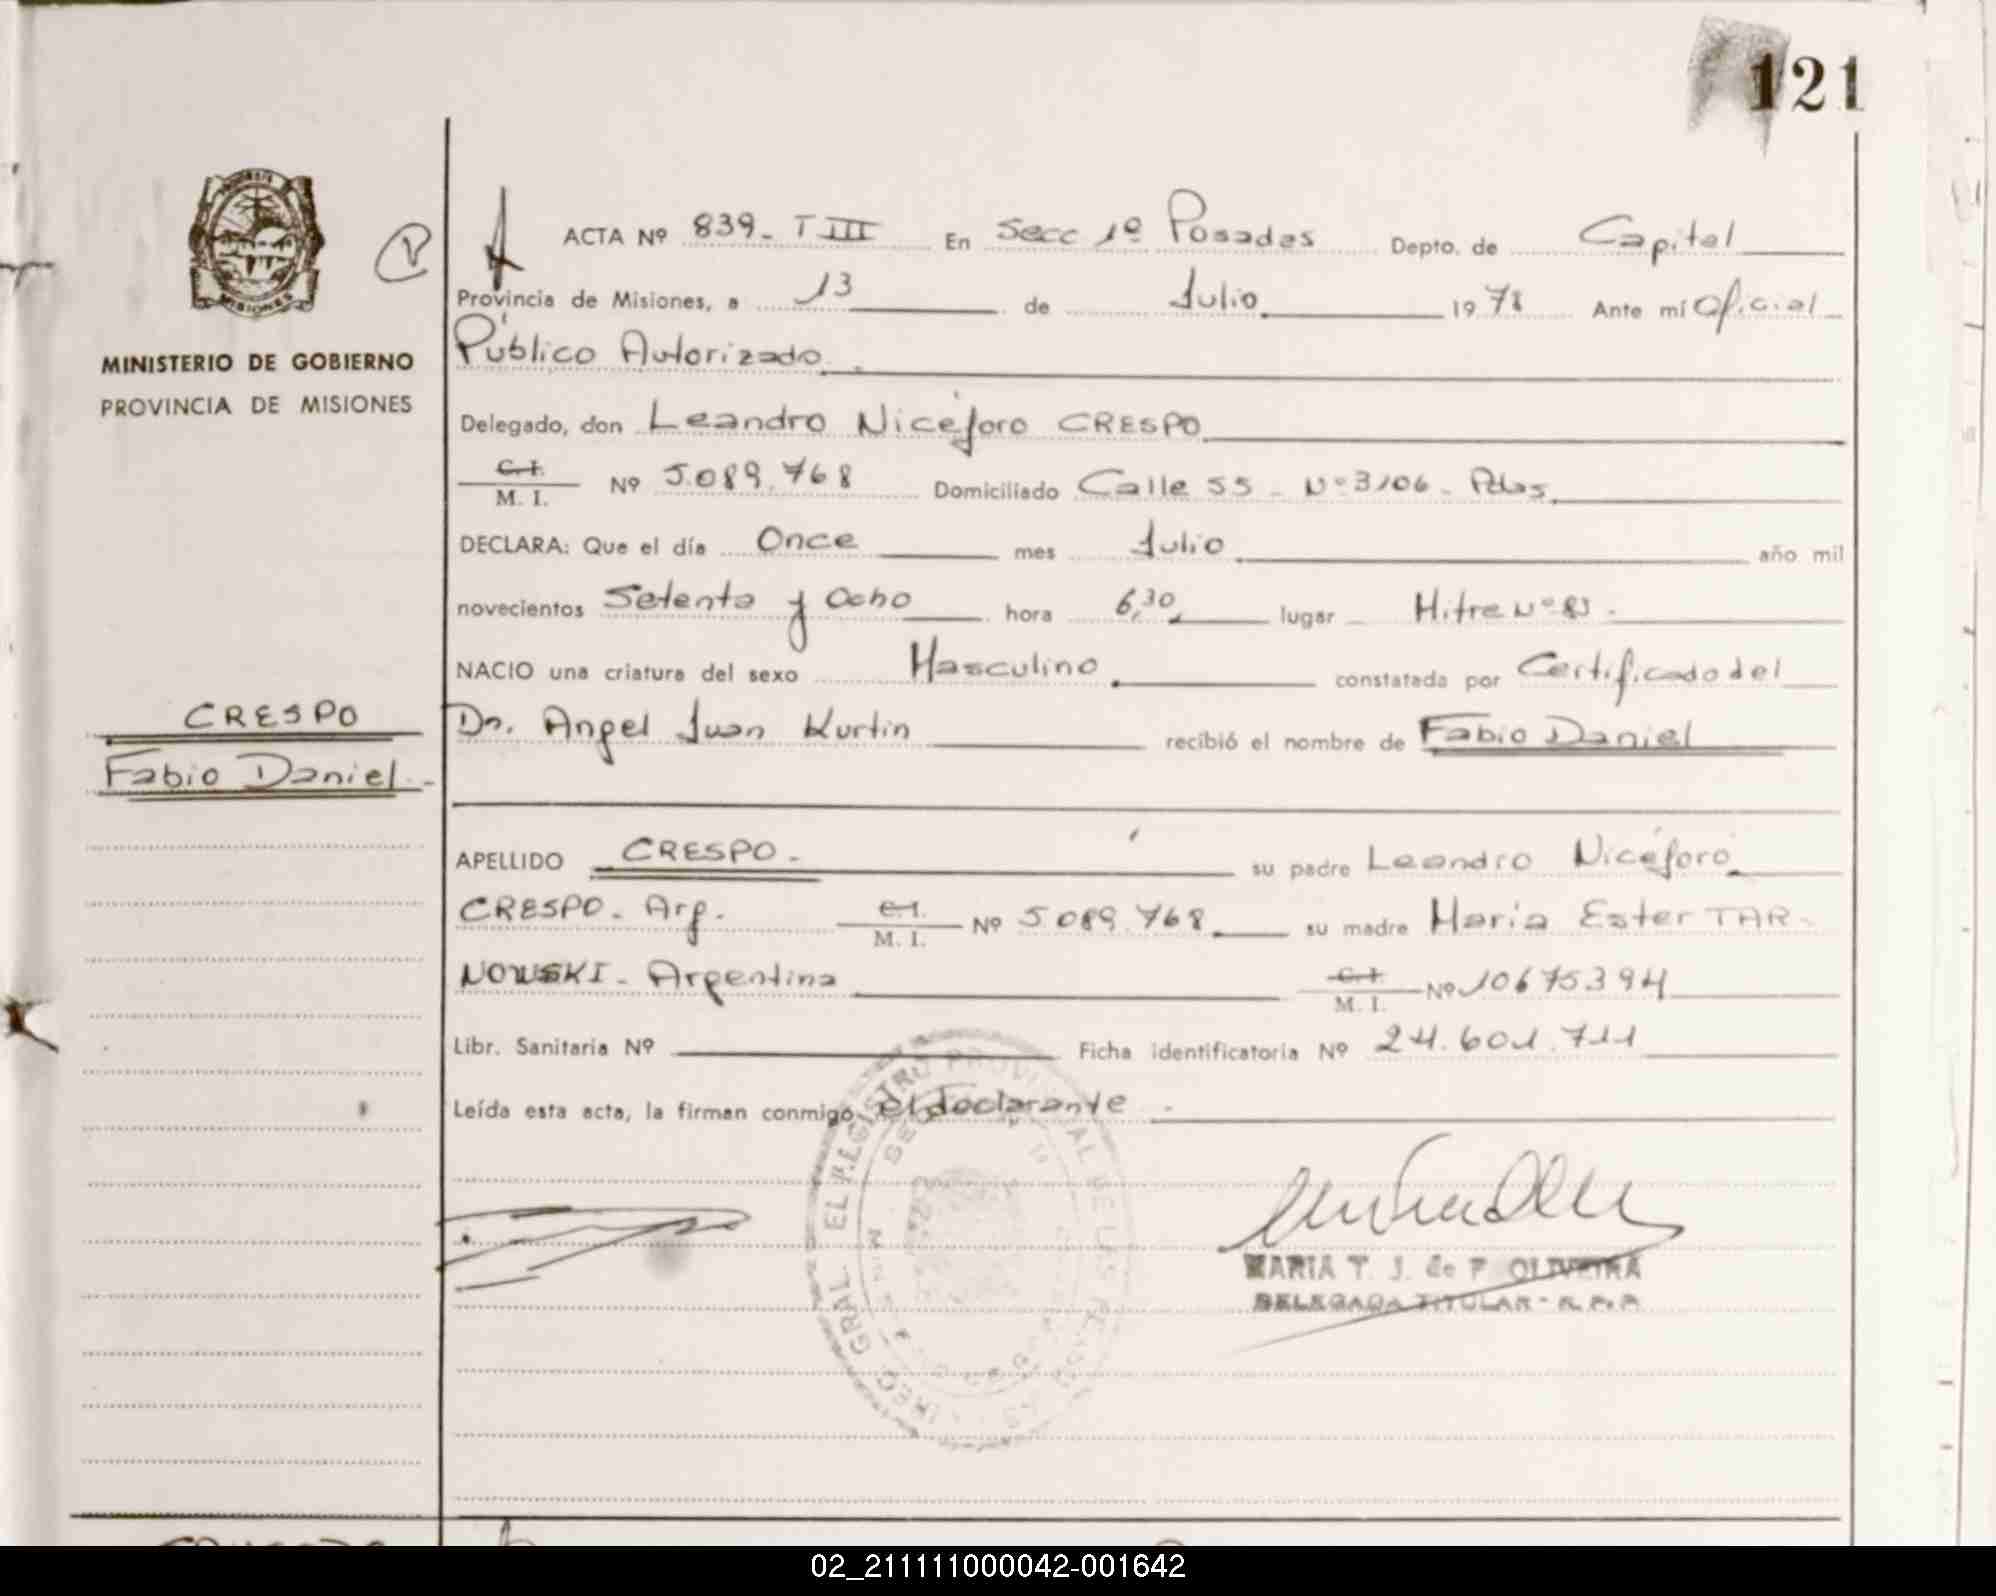 121
ACTA Nº 839_ T III En Secc 1º Posadas Depto. de Capital
Provincia de Misiones, a 13 de Julio 1978 Ante mí Oficial
Público Autorizado
MINISTERIO DE GOBIERNO
PROVINCIA DE MISIONES
Delegado, don Leandro Nicéforo CRESPO
C.I.
M. I. Nº 5.089.768 Domiciliado Calle 55 - Nº 3106 - Pdas
DECLARA: Que el día Once mes Julio año mil
novecientos Setenta y Ocho hora 6,30 lugar Mitre Nº 83.
NACIO una criatura del sexo Masculino constatada por Certificado del
Dr. Angel Juan Kurtin recibió el nombre de Fabio Daniel
CRESPO
Fabio Daniel
APELLIDO CRESPO. su padre Leandro Nicéforo
CRESPO. Arg. C.I.
M. I. Nº 5.089.768 su madre Maria Ester TAR-
NOWSKI - Argentina C.I.
M. I. Nº 10675394
Libr. Sanitaria Nº Ficha identificatoria Nº 24.601.711
Leída esta acta, la firman conmigo, el declarante.
GRAL. EL REGISTRO PROVINCIAL DE LAS
MARIA T. J. de P. OLIVEIRA
DELEGADA TITULAR - R.P.P.
02_211111000042-001642